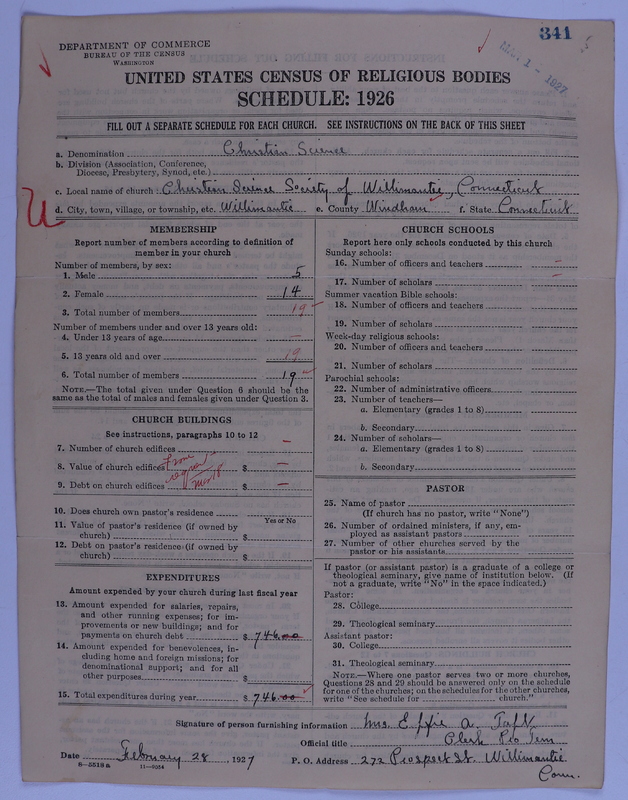 341
DEPARTMENT OF COMMERCE
BUREAU OF THE CENSUS
WASHINGTON
MAR 1 - 1927
UNITED STATES CENSUS OF RELIGIOUS BODIES
SCHEDULE: 1926
FILL OUT A SEPARATE SCHEDULE FOR EACH CHURCH. SEE INSTRUCTIONS ON THE BACK OF THIS SHEET
a. Denomination Christian Science
b. Division (Association, Conference,
Diocese, Presbytery, Synod, etc.)
c. Local name of church: Christian Science Society of Willimantic, Connecticut
U d. City, town, village, or township, etc. Willimantic e. County Windham f. State Connecticut
MEMBERSHIP
Report number of members according to definition of
member in your church
Number of members, by sex:
1. Male 5
2. Female 14
3. Total number of members 19
Number of members under and over 13 years old:
4. Under 13 years of age —
5. 13 years old and over 19
6. Total number of members 19
NOTE.—The total given under Question 6 should be the
same as the total of males and females given under Question 3.
CHURCH BUILDINGS
See instructions, paragraphs 10 to 12
7. Number of church edifices —
8. Value of church edifices $ —
9. Debt on church edifices $ —
10. Does church own pastor's residence
Yes or No
11. Value of pastor's residence (if owned by
church) $
12. Debt on pastor's residence (if owned by
church) $
EXPENDITURES
Amount expended by your church during last fiscal year
13. Amount expended for salaries, repairs,
and other running expenses; for im-
provements or new buildings; and for
payments on church debt $ 746.00
14. Amount expended for benevolences, in-
cluding home and foreign missions; for
denominational support; and for all
other purposes $
15. Total expenditures during year $ 746.00
CHURCH SCHOOLS
Report here only schools conducted by this church
Sunday schools:
16. Number of officers and teachers —
17. Number of scholars —
Summer vacation Bible schools:
18. Number of officers and teachers
19. Number of scholars
Week-day religious schools:
20. Number of officers and teachers
21. Number of scholars
Parochial schools:
22. Number of administrative officers
23. Number of teachers—
a. Elementary (grades 1 to 8)
b. Secondary
24. Number of scholars—
a. Elementary (grades 1 to 8)
b. Secondary
PASTOR
25. Name of pastor
(If church has no pastor, write "None")
26. Number of ordained ministers, if any, em-
ployed as assistant pastors
27. Number of other churches served by the
pastor or his assistants
If pastor (or assistant pastor) is a graduate of a college or
theological seminary, give name of institution below. (If
not a graduate, write "No" in the space indicated.)
Pastor:
28. College
29. Theological seminary
Assistant pastor:
30. College
31. Theological seminary
NOTE.—Where one pastor serves two or more churches,
Questions 28 and 29 should be answered only on the schedule
for one of the churches; on the schedules for the other churches,
write "See schedule for church."
Signature of person furnishing information Mrs. Effie A. Taft
Official title Clerk Pro Tem
Date February 28, 1927 P. O. Address 272 Prospect St. Willimantic
Conn.
8-5518a 11-9554